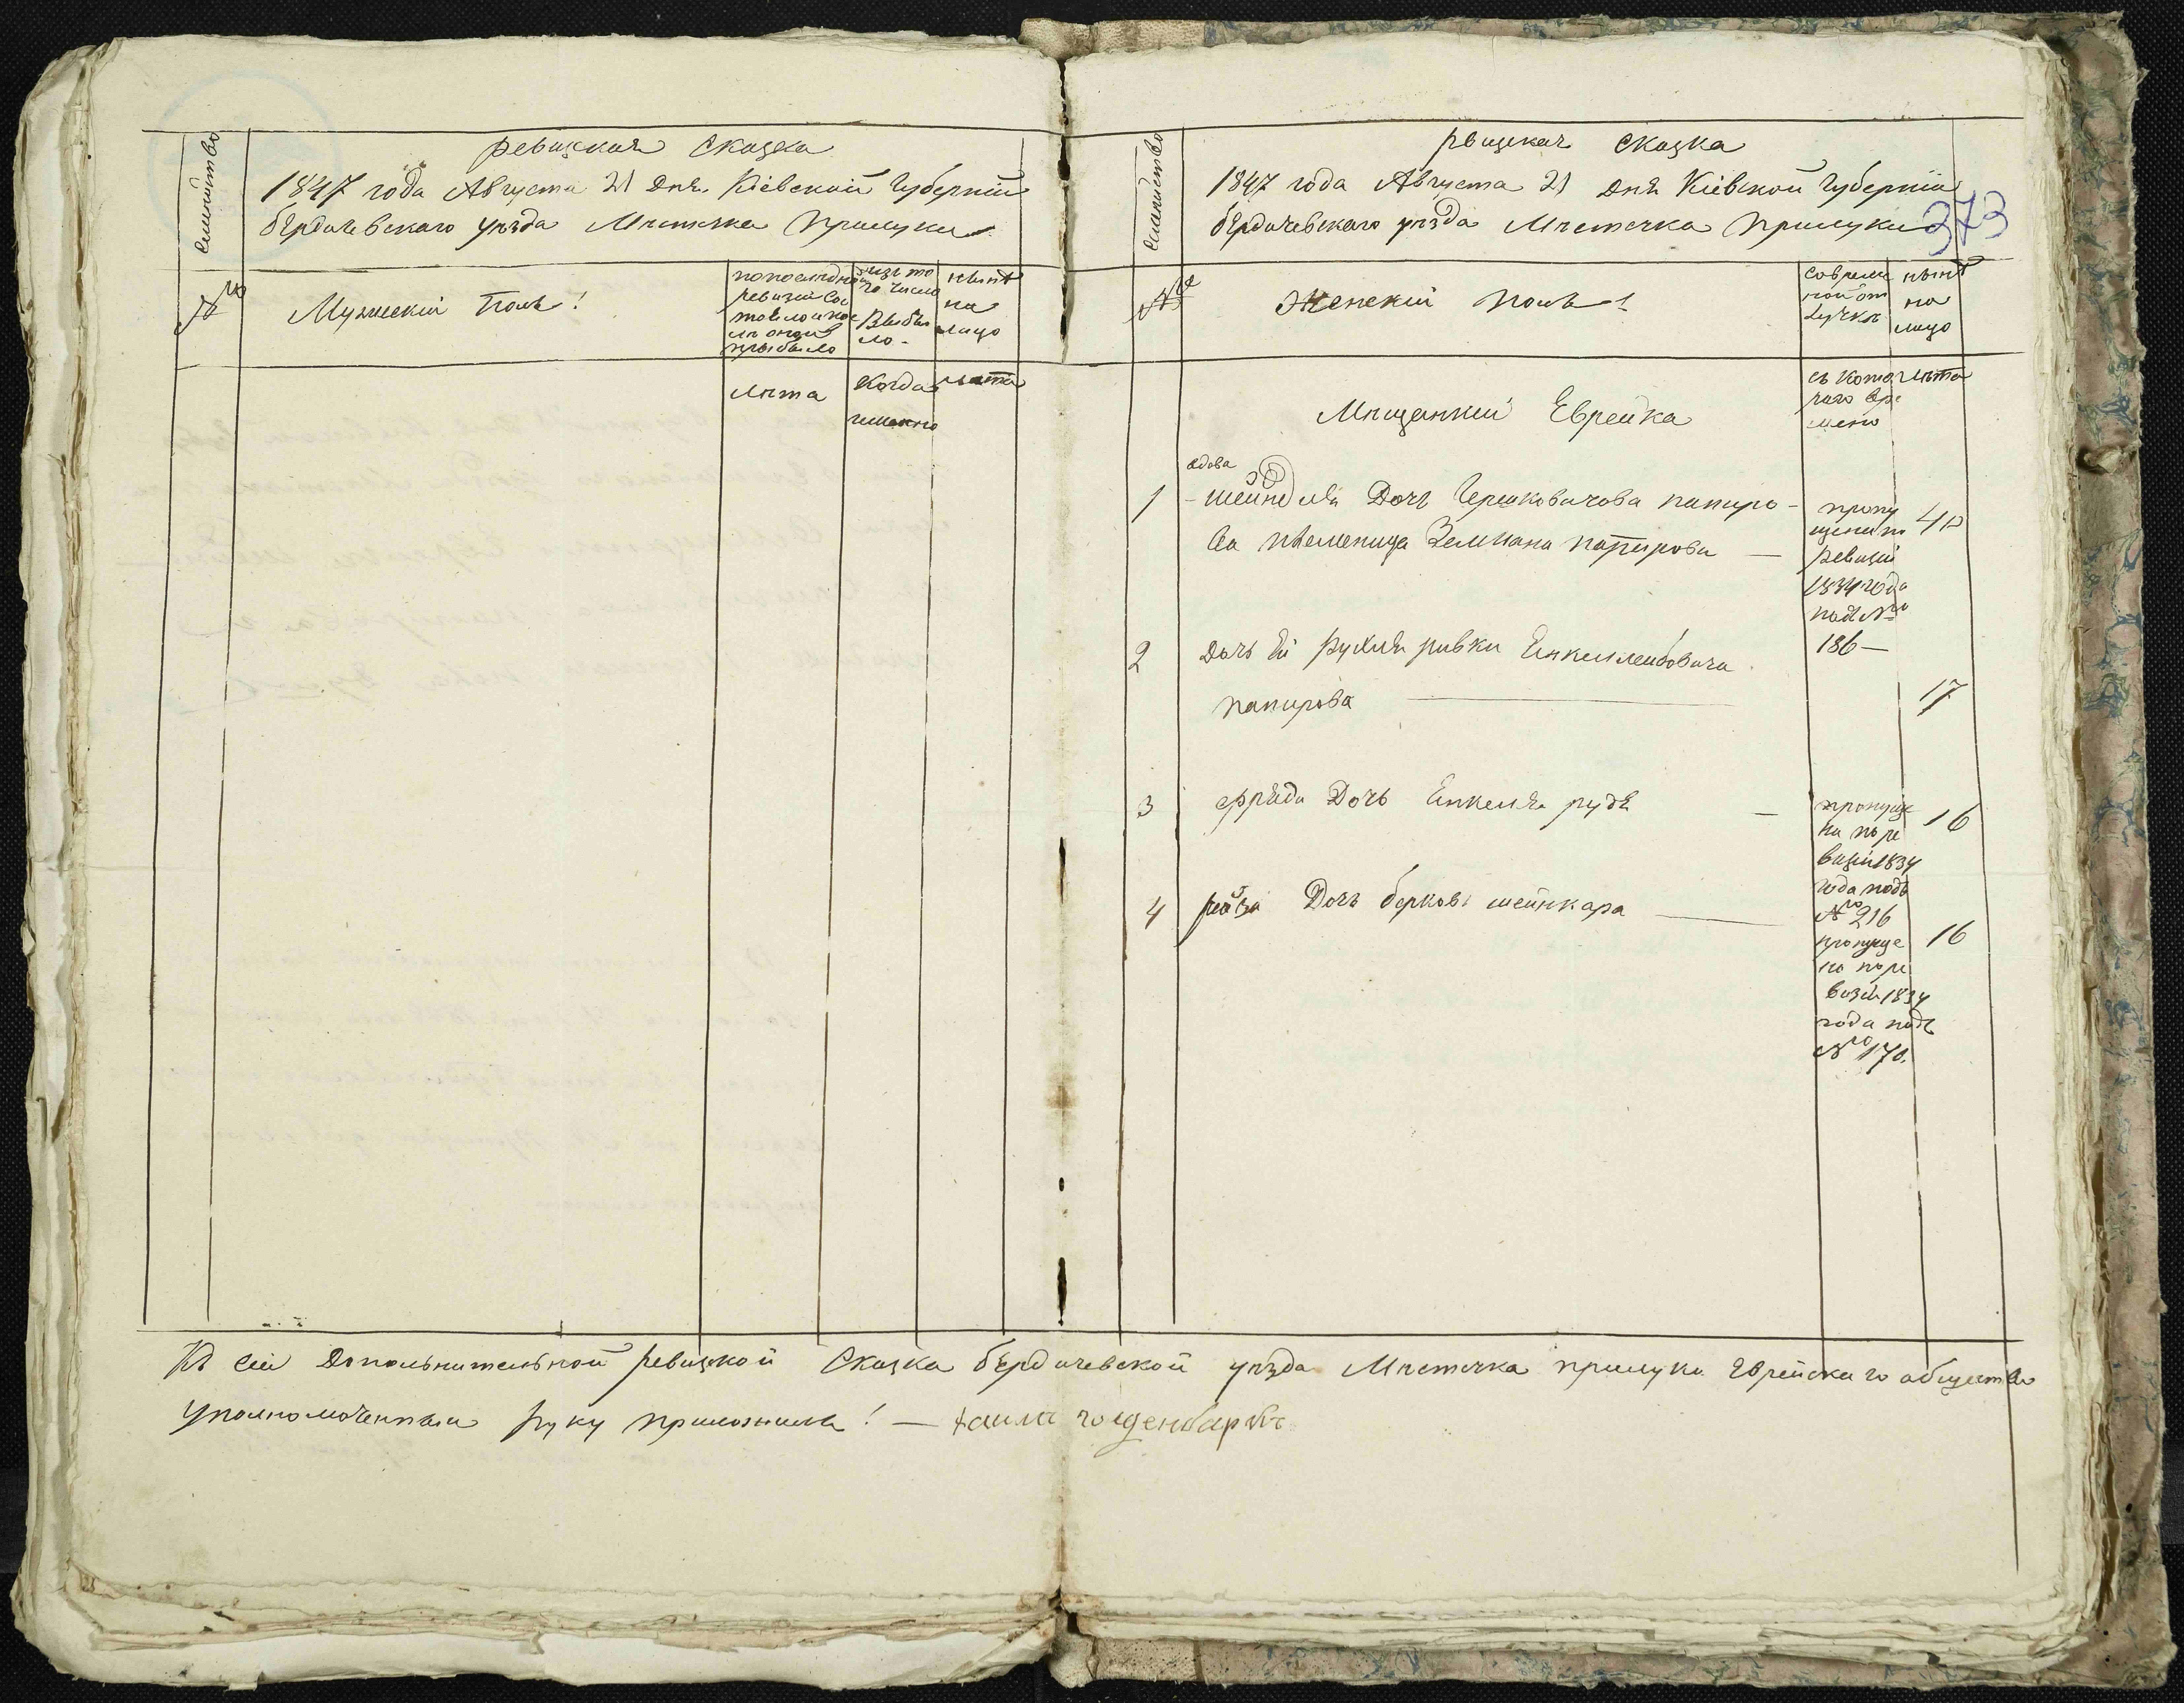 Семейство
ревизкая Сказка
1847 года Августа 21 Дня Кіевской Губерніи
бердичевскаго уѣзда Мѣстечка Прилуки
№
Мужескій Полъ!
попослѣдней
ревизіи Со
тояло и пос
лѣ оной
прибыло
изъ то
го числа
Выбы
ло
нынѣ
на
лицо
лѣта
Когда
именно
лѣта
Семейство
рвизкая Сказка
1847 года Августа 21 Дня Кіевской Губерніи
бердичевскаго уѣзда Мѣстечка Прилуки
373
№
Женскій полъ!
Совреме
ной от
лучкѣ
нынѣ
на
лицо
съ кото
раго вре
мено
лѣта
Мѣщанкій Еврейка
вдова
1 Шейндля Дочь Гершковичова папиро
ва племеница Зелмана папирова
пропу
щена по
ревизій
1834 года
подъ №
186
40
2 Дочь Ей Рухля ривки Енкиллейбовича
папирова
17
3 Фрейда Дочь Енкеля рудѣ
пропуще
на поре
визіи 1834
года подъ
№ 216
16
4 рейза Дочь беркова шейнкара
пропуще
на поре
визіи 1834
года подъ
№ 170.
16
Къ сей Дополнительной ревизкой Сказка бердичевской уѣзда Мѣстечка прилуки Еврейскаго общества
Уполномоченным руку приложила! — хаимъ голденбаръгъ